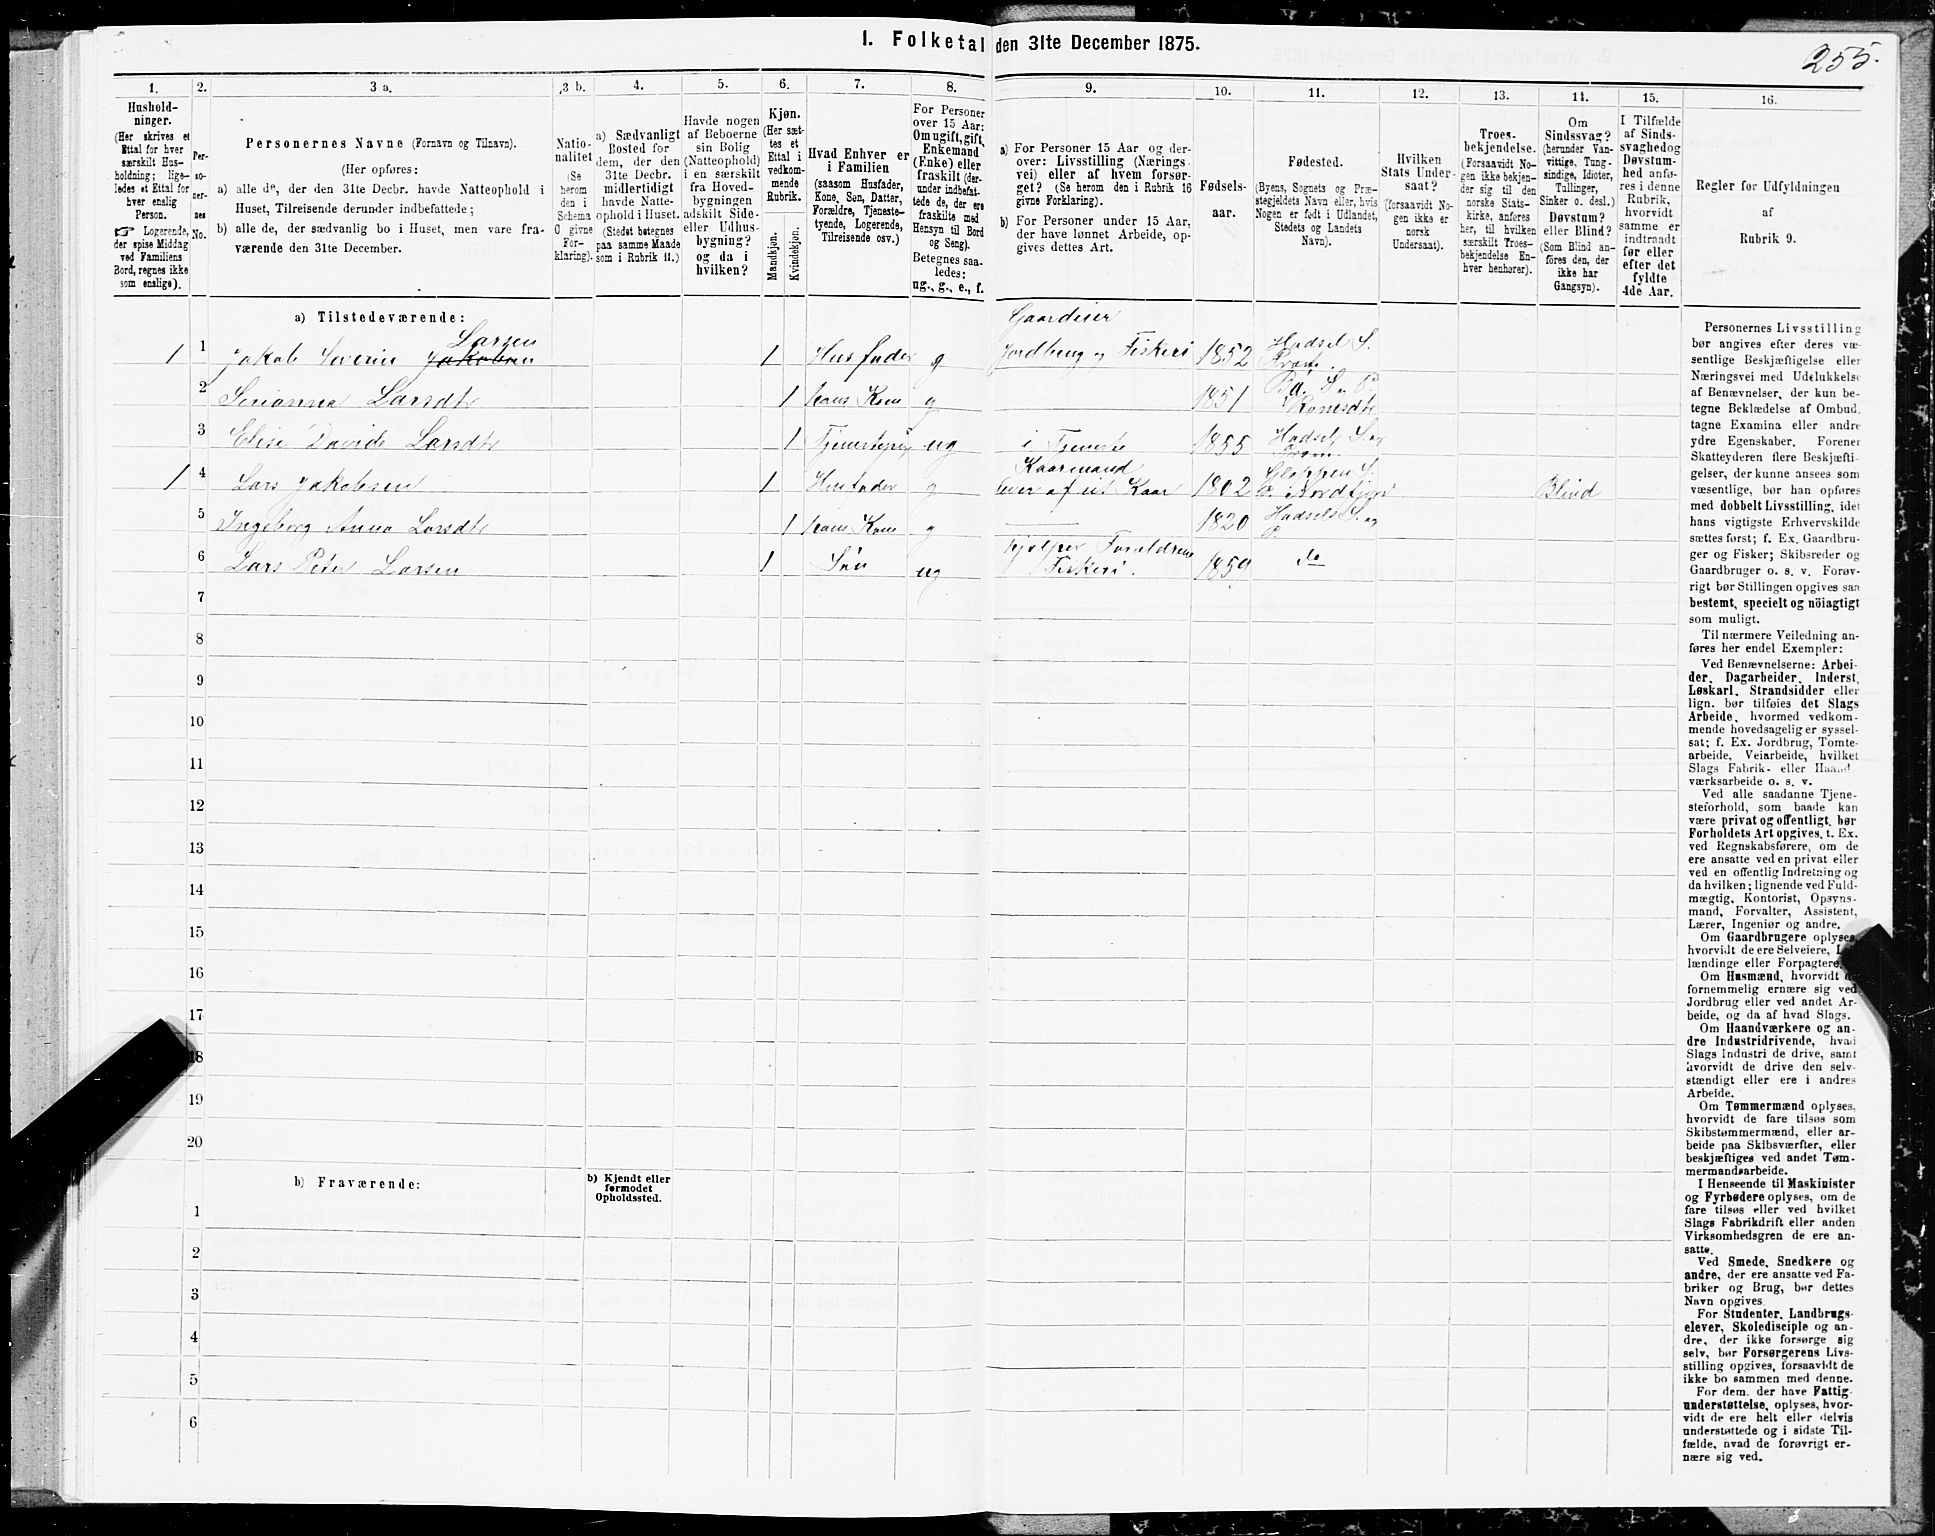 I. Folketal den 31te December 1875.
255.
1.
Husholdninger.
(Her skrives et
Ettal for hver
særskilt Husholdning; ligeledes
et Ettal for
hver enslig
Person.
☞ Logerende,
der spise Middag
ved Familiens
Bord, regnes ikke
som enslige).
2.
Personernes
No.
3 a.
Personernes Navne (Fornavn og Tilnavn).
(Her opføres:
a) alle de, der den 31te Decbr. havde Natteophold i
Huset, Tilreisende derunder indbefattede;
b) alle de, der sædvanlig bo i Huset, men vare fraværende
den 31te December.
3 b.
Nationalitet
(Se
herom
den i
Schema
C givne
Forklaring).
4.
a) Sædvanligt
Bosted for
dem, der den
31te Decbr.
midlertidigt
havde Natteophold
i Huset.
(Stedet betegnes
paa samme Maade
som i Rubrik 11.)
5.
Havde nogen
af Beboerne
sin Bolig
(Natteophold)
i en særskilt
fra Hovedbygningen
adskilt Side-
eller Udhusbygning?
og da i
hvilken?
6.
Kjøn.
(Her sættes
et
Ettal i
vedkommende
Rubrik.
Mandkjøn.
Kvindekjøn.
7.
Hvad Enhver er
i Familien
(saasom Husfader,
Kone, Søn, Datter,
Forældre, Tjenestetyende,
Logerende,
Tilreisende osv.)
8.
For Personer
over 15 Aar:
Om ugift, gift,
Enkemand
(Enke) eller
fraskilt (derunder
indbefattede
de, der ere
fraskilte med
Hensyn til Bord
og Seng).
Betegnes saaledes:
ug., g., e., f.
9.
a) For Personer 15 Aar og derover:
Livsstilling (Næringsvei)
eller af hvem forsørget?
(Se herom den i Rubrik 16
givne Forklaring).
b) For Personer under 15 Aar,
der have lønnet Arbeide, opgives
dettes Art.
10.
Fødselsaar.
11.
Fødested.
(Byens, Sognets og Præstegjeldets
Navn eller, hvis
Nogen er født i Udlandet,
Stedets og Landets
Navn).
12.
Hvilken
Stats Undersaat?
(forsaavidt Nogen
ikke er
norsk
Undersaat).
13.
Troesbekjendelse.
(Forsaavidt Nogen
ikke bekjender
sig til den
norske Statskirke,
anføres
her, til hvilken
særskilt Troesbekjendelse
Enhver
henhører).
14.
Om
Sindssvag?
(herunder Vanvittige,
Tungsindige,
Idioter,
Tullinger,
Sinker o. desl.)
Døvstum?
eller Blind?
(Som Blind anføres
den, der
ikke har
Gangsyn).
15.
I Tilfælde
af Sindssvaghed
og
Døvstumhed
anføres
i denne
Rubrik,
hvorvidt
samme er
indtraadt
før eller
efter det
fyldte
4de Aar.
16.
Regler for Udfyldningen
af
Rubrik 9.
a) Tilstedeværende:
Larsen
Gaardeier
1 1 Jakob Severin Jakobsen 1 Husfader g Jordbrug og Fiskeri 1852 Hadsel S.
2 Larsdtr 1 hans Kone g 1851
3 Elise Davide Larsdtr 1 ug i Tjeneste 1855 Hadsel S. og
Kaarmand
1 4 Lars Jakobsen 1 Husfader g lever af sit Kaar 1802 Gloppen S. Blind
Nordfjord
5 Ingeborg Anna Larsdtr 1 hans Kone g 1820 Hadsels S. og
P.
6 Lars Peter Larsen 1 Søn ug hjelper Forældrene 1859 do
Fiskeri.
7
8
9
10
11
12
13
14
15
16
17
18
19
20
b) Fraværende:
b) Kjendt eller
formodet
Opholdssted.
1
2
3
4
5
6
Personernes Livsstilling
bør angives efter deres væsentlige
Beskjæftigelse eller
Næringsvei med Udelukkelse
af Benævnelser, der kun betegne
Beklædelse af Ombud,
tagne Examina eller andre
ydre Egenskaber. Forener
Skatteyderen flere Beskjæftigelser,
der kunne ansees som
væsentlige, bør han opføres
med dobbelt Livsstilling, idet
hans vigtigste Erhvervskilde
sættes først; f. Ex. Gaardbruger
og Fisker; Skibsreder og
Gaardbruger o. s. v. Forøvrigt
bør Stillingen opgives saa
bestemt, specielt og nöiagtigt
som muligt.
Til nærmere Veiledning anføres
her endel Exempler:
Ved Benævnelserne: Arbeider,
Dagarbeider, Inderst,
Løskarl, Strandsidder eller
lign. bør tilføies det Slags
Arbeide, hvormed vedkommende
hovedsagelig er sysselsat;
f. Ex. Jordbrug, Tomtearbeide,
Veiarbeide, hvilket
Slags Fabrik- eller Haandværksarbeide
o. s. v.
Ved alle saadanne Tjenesteforhold,
som baade kan
være privat og offentligt, bør
Forholdets Art opgives, t. Ex.
ved Regnskabsførere, om de
ere ansatte ved en privat eller
ved en offentlig Indretning og
da hvilken; lignende ved Fuldmægtig,
Kontorist, Opsynsmand,
Forvalter, Assistent,
Lærer, Ingeniør og andre.
Om Gaardbrugere oplyses,
hvorvidt de ere Selveiere, Leilændinge
eller Forpagtere.
Om Husmænd, hvorvidt de
fornemmelig ernære sig ved
Jordbrug eller ved andet Arbeide,
og da af hvad Slags.
Om Haandværkere og andre
Industridrivende, hvad
Slags Industri de drive, samt
hvorvidt de drive den selvstændigt
eller ere i andres
Arbeide.
Om Tømmermænd oplyses,
hvorvidt de fare tilsøs som
Skibstømmermænd, eller arbeide
paa Skibsværfter, eller
beskjæftiges ved andet Tømmermandsarbeide.
I Henseende til Maskinister
og Fyrbødere oplyses, om de
fare tilsøs eller ved hvilket
Slags Fabrikdrift eller anden
Virksomhedsgren de ere ansatte.
Ved Smede, Snedkere og
andre, der ere ansatte ved Fabriker
og Brug, bør dettes
Navn opgives.
For Studenter, Landbrugselever,
Skoledisciple og andre,
der ikke forsørge sig
selv, bør Forsørgerens Livsstilling
opgives, forsaavidt de
ikke bo sammen med denne.
For dem, der have Fattigunderstøttelse,
oplyses, hvorvidt
de ere helt eller delvis
understøttede og i sidste Tilfælde,
hvad de forøvrigt ernære
sig ved.